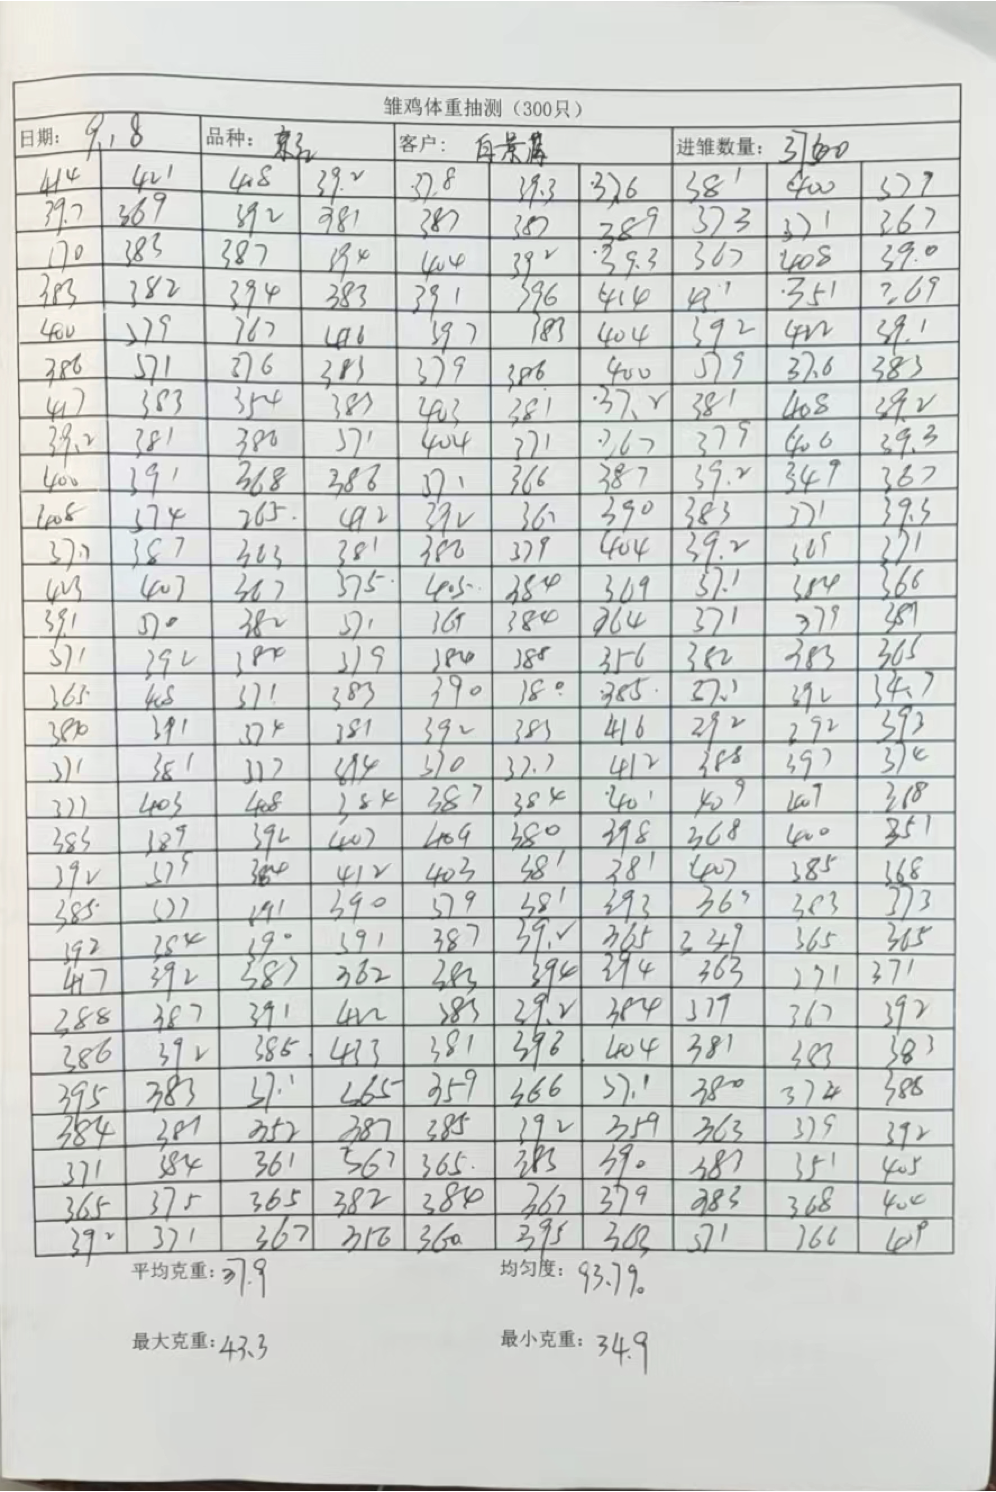 雏鸡体重抽测（300只）
日期： 9.8 品种： 京红 客户： 进雏数量：
414 421 408 39.2 37.8 39.3 37.6 381 400 379
39.7 369 392 381 387 387 389 373 371 367
370 383 387 394 404 392 39.3 367 408 39.0
383 382 394 383 391 396 414 351 369
400 379 367 416 397 383 404 392 422 39.1
386 371 376 383 379 386 400 379 37.6 383
417 383 354 383 403 381 37.2 381 408 39.2
39.2 381 380 371 404 371 367 379 400 39.3
400 391 368 386 371 366 387 39.2 349 367
408 374 365 412 392 367 390 383 371 39.3
37.7 387 363 381 380 379 404 39.2 369 371
403 403 367 375 405 384 369 37.1 384 366
39.1 370 382 371 369 384 364 371 379 387
371 392 384 379 384 388 356 382 383 365
365 408 371 383 390 380 385 37.1 392 34.7
380 391 374 381 392 383 416 392 392 393
371 381 377 394 370 37.7 412 388 397 374
377 403 408 384 387 384 401 409 409 368
383 389 392 407 409 380 398 368 400 351
392 379 384 412 403 381 381 407 385 368
385 377 391 390 379 381 393 367 383 373
392 384 390 391 387 39.2 365 349 365 365
417 392 387 362 383 394 394 363 371 371
388 387 391 422 383 39.2 384 379 367 392
386 392 385 433 381 393 404 381 383 383
395 383 37.1 365 359 366 37.1 380 374 388
384 387 352 387 385 392 359 363 379 392
371 384 361 367 365 383 390 387 351 405
365 375 365 382 384 367 379 383 368 404
392 371 367 356 360 395 363 371 366 409
平均克重：37.9 均匀度：93.7%
最大克重：43.3 最小克重：34.9